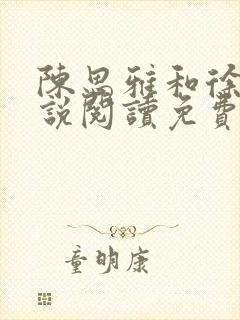 陳思雅和徐
說閱讀免費
童明康